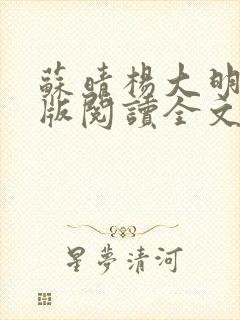 蘇晴楊大明
版閱讀全文
星夢清河